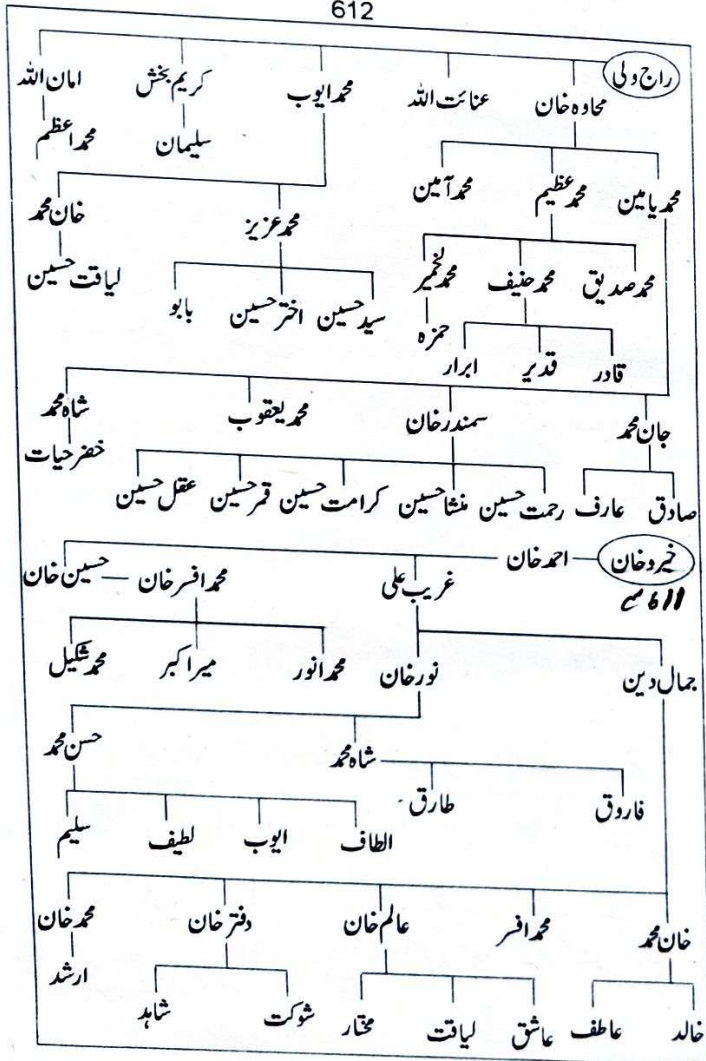 612
راج ولی
محاوہ خان عنائت اللہ محمد ایوب کریم بخش امان اللہ
سلیمان محمد اعظم
محمد یامین محمد عظیم محمد آمین
محمد عزیز خان محمد
محمد صدیق محمد حنیف محمد
سید حسین اختر حسین بابو لیاقت حسین
قادر قدیر ابرار حمزہ
جان محمد سمندر خان محمد یعقوب شاہ محمد
صادق عارف رحمت حسین منشا حسین کرامت حسین قمر حسین عقل حسین خضر حیات
خیرو خان احمد خان غریب علی محمد افسر خان حسین خان
611 سے
جمال دین نور خان محمد انور میر اکبر محمد شکیل
شاہ محمد حسن محمد
فاروق طارق
الطاف ایوب لطیف سلیم
خان محمد محمد افسر عالم خان دفتر خان محمد خان
خالد عاطف عاشق لیاقت مختار شوکت شاہد ارشد